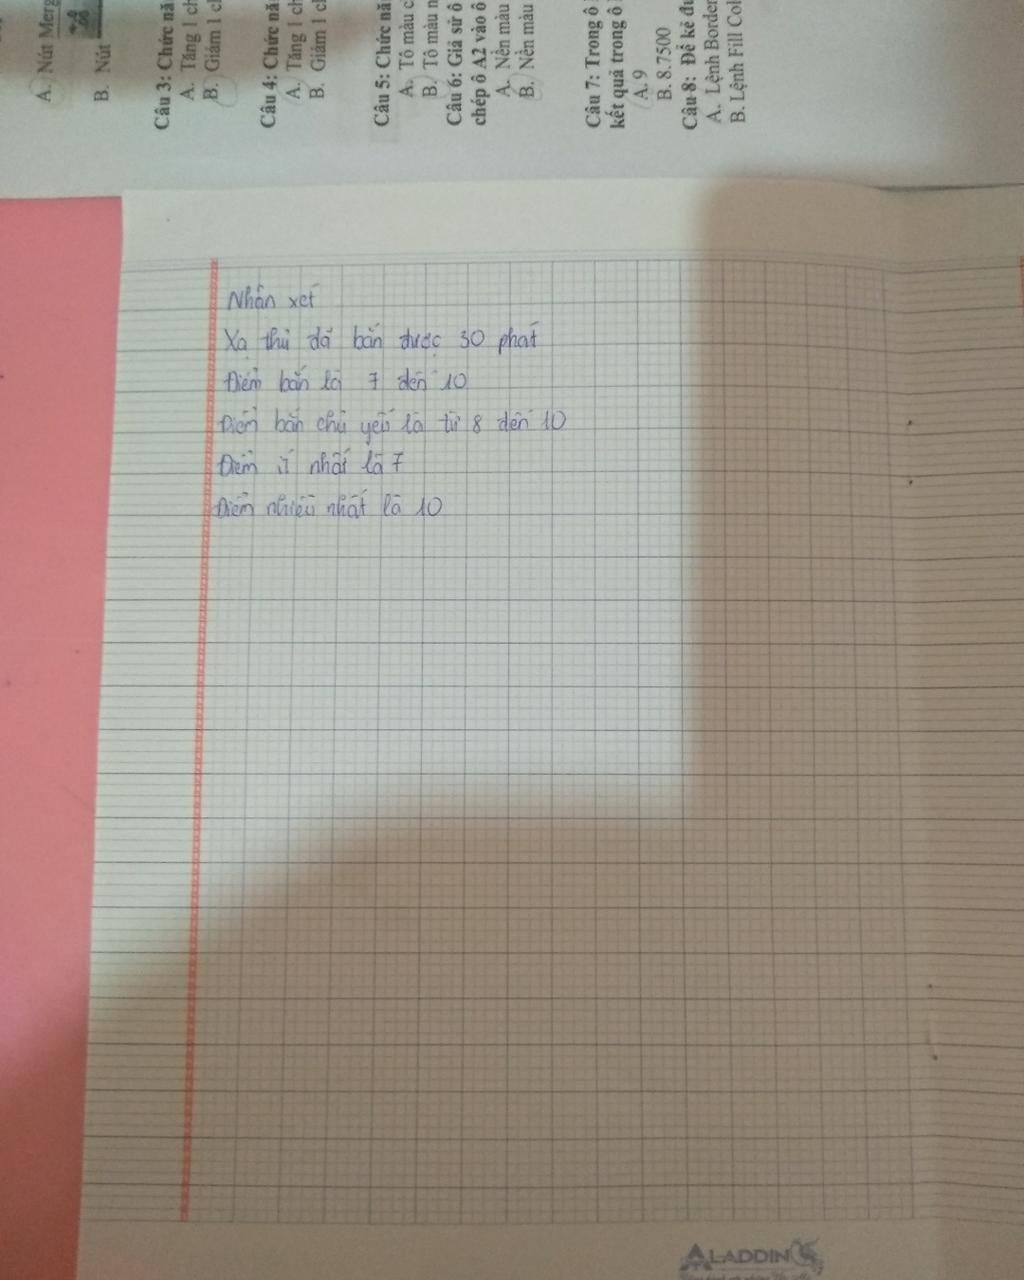 A. Nút Merg
B. Nút
Câu 3: Chức nă
A. Tăng 1 ch
B. Giảm 1 c
Câu 4: Chức nă
A. Tăng 1 ch
B. Giảm 1 cl
Câu 5: Chức nă
A. Tô màu c
B. Tô màu n
Câu 6: Giả sử ô
chép ô A2 vào ô
A. Nền màu
B. Nền màu
Câu 7: Trong ô
kết quả trong ô
A. 9
B. 8.7500
Câu 8: Để kẻ đu
A. Lệnh Border
B. Lệnh Fill Col
Nhận xét
Xạ thủ đã bắn được 30 phát
Điểm bắn là 7 đến 10
Điểm bắn chủ yếu là từ 8 đến 10
Điểm ít nhất là 7
Điểm nhiều nhất là 10
ALADDIN